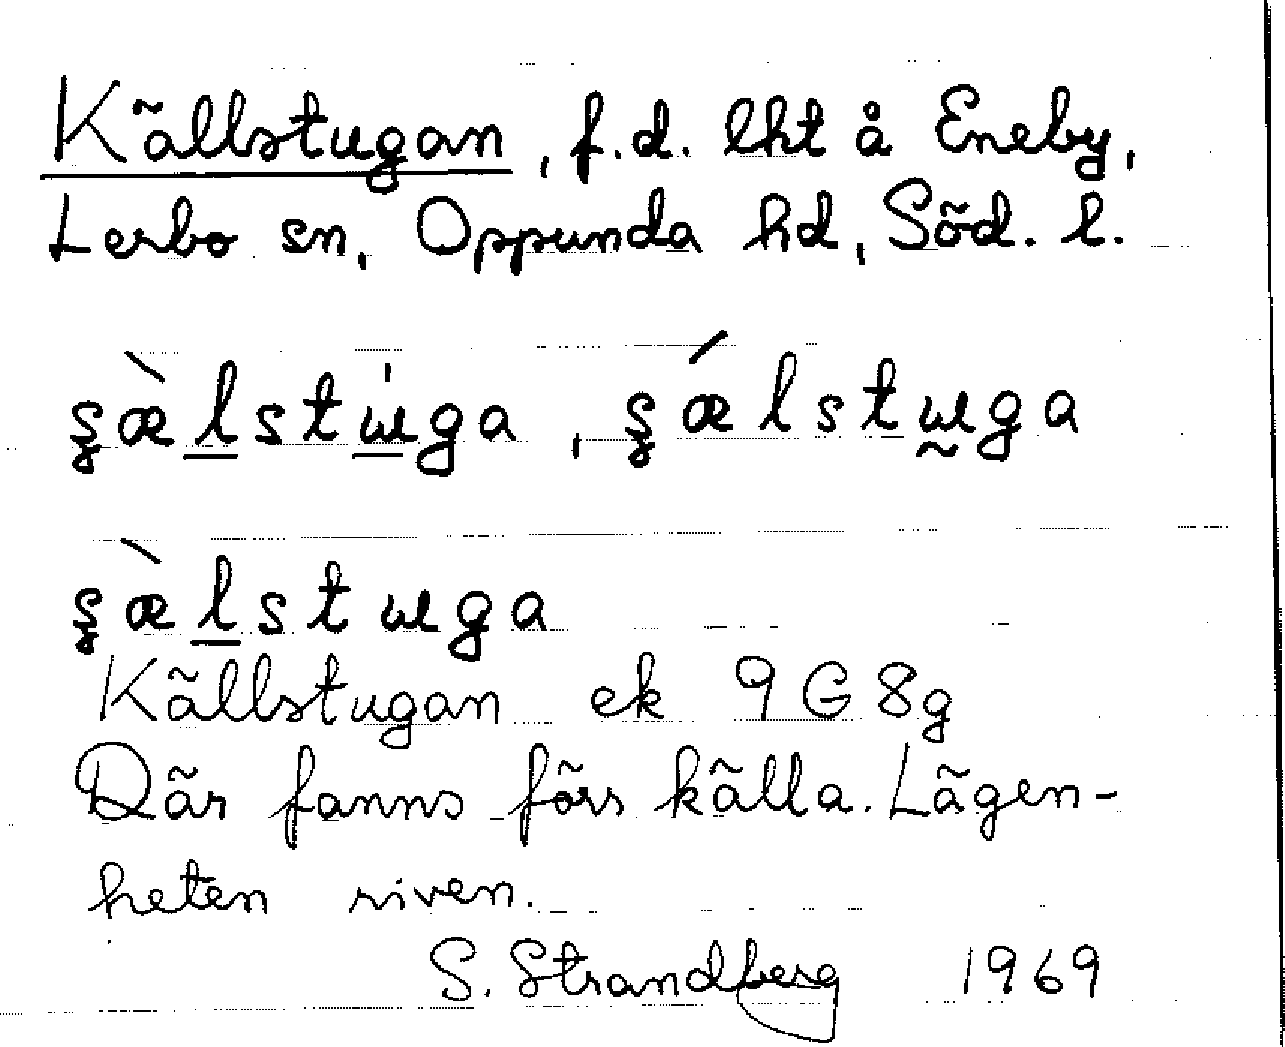 Källstugan, f.d. lht å Eneby,
Lerbo sn, Oppunda hd, Söd. l.
ʂæ̀l̲stɯ̲̍ga, ʂǽlstɯ̰ga
ʂæ̀l̲stɯga
Källstugan ek 9G8g
Där fanns förs källa. Lägen-
heten riven.
S. Strandberg 1969